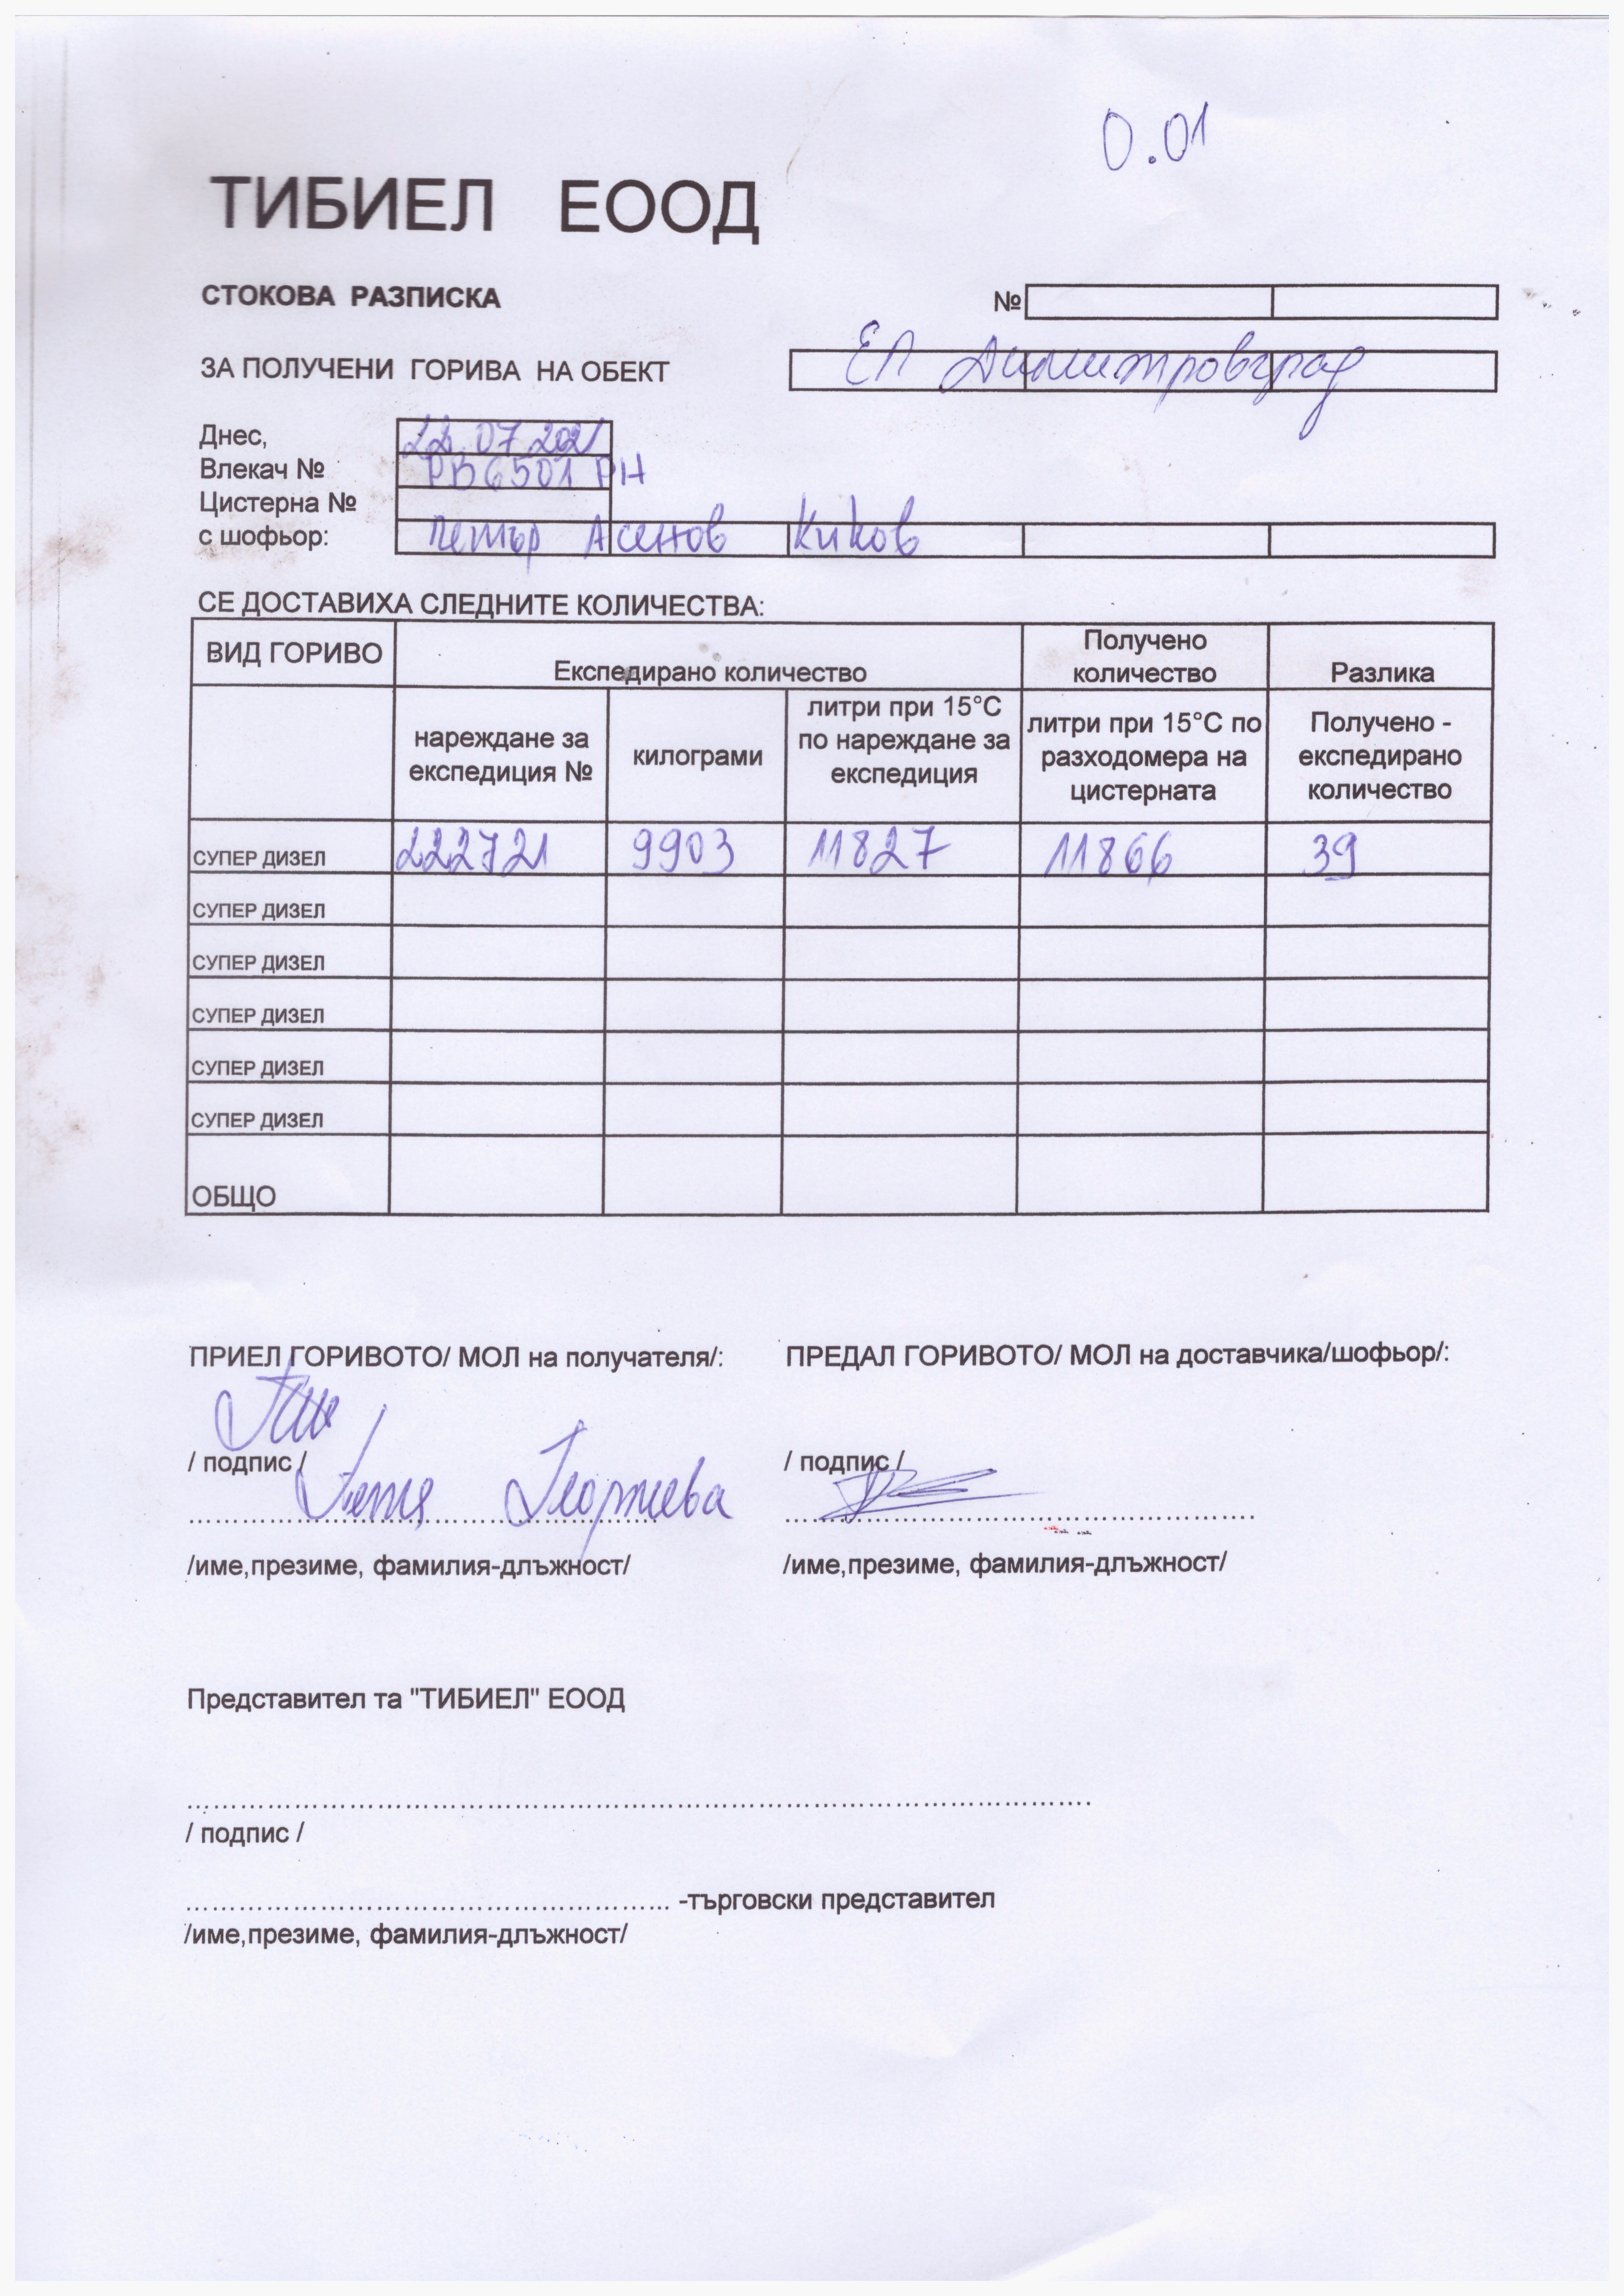 0.01
ТИБИЕЛ ЕООД
СТОКОВА РАЗПИСКА №
ЗА ПОЛУЧЕНИ ГОРИВА НА ОБЕКТ ЕЛ Димитровград
Днес, 22.07.2021
Влекач № РВ6501РН
Цистерна №
с шофьор: Петър Асенов Киков
СЕ ДОСТАВИХА СЛЕДНИТЕ КОЛИЧЕСТВА:
ВИД ГОРИВО Експедирано количество Получено количество Разлика
нареждане за експедиция № килограми литри при 15°С по нареждане за експедиция литри при 15°С по разходомера на цистерната Получено - експедирано количество
СУПЕР ДИЗЕЛ 222721 9903 11827 11866 39
СУПЕР ДИЗЕЛ
СУПЕР ДИЗЕЛ
СУПЕР ДИЗЕЛ
СУПЕР ДИЗЕЛ
СУПЕР ДИЗЕЛ
ОБЩО
ПРИЕЛ ГОРИВОТО/ МОЛ на получателя/: ПРЕДАЛ ГОРИВОТО/ МОЛ на доставчика/шофьор/:
/ подпис / / подпис /
Георгиева
/име,презиме, фамилия-длъжност/ /име,презиме, фамилия-длъжност/
Представител та "ТИБИЕЛ" ЕООД
/ подпис /
-търговски представител
/име,презиме, фамилия-длъжност/